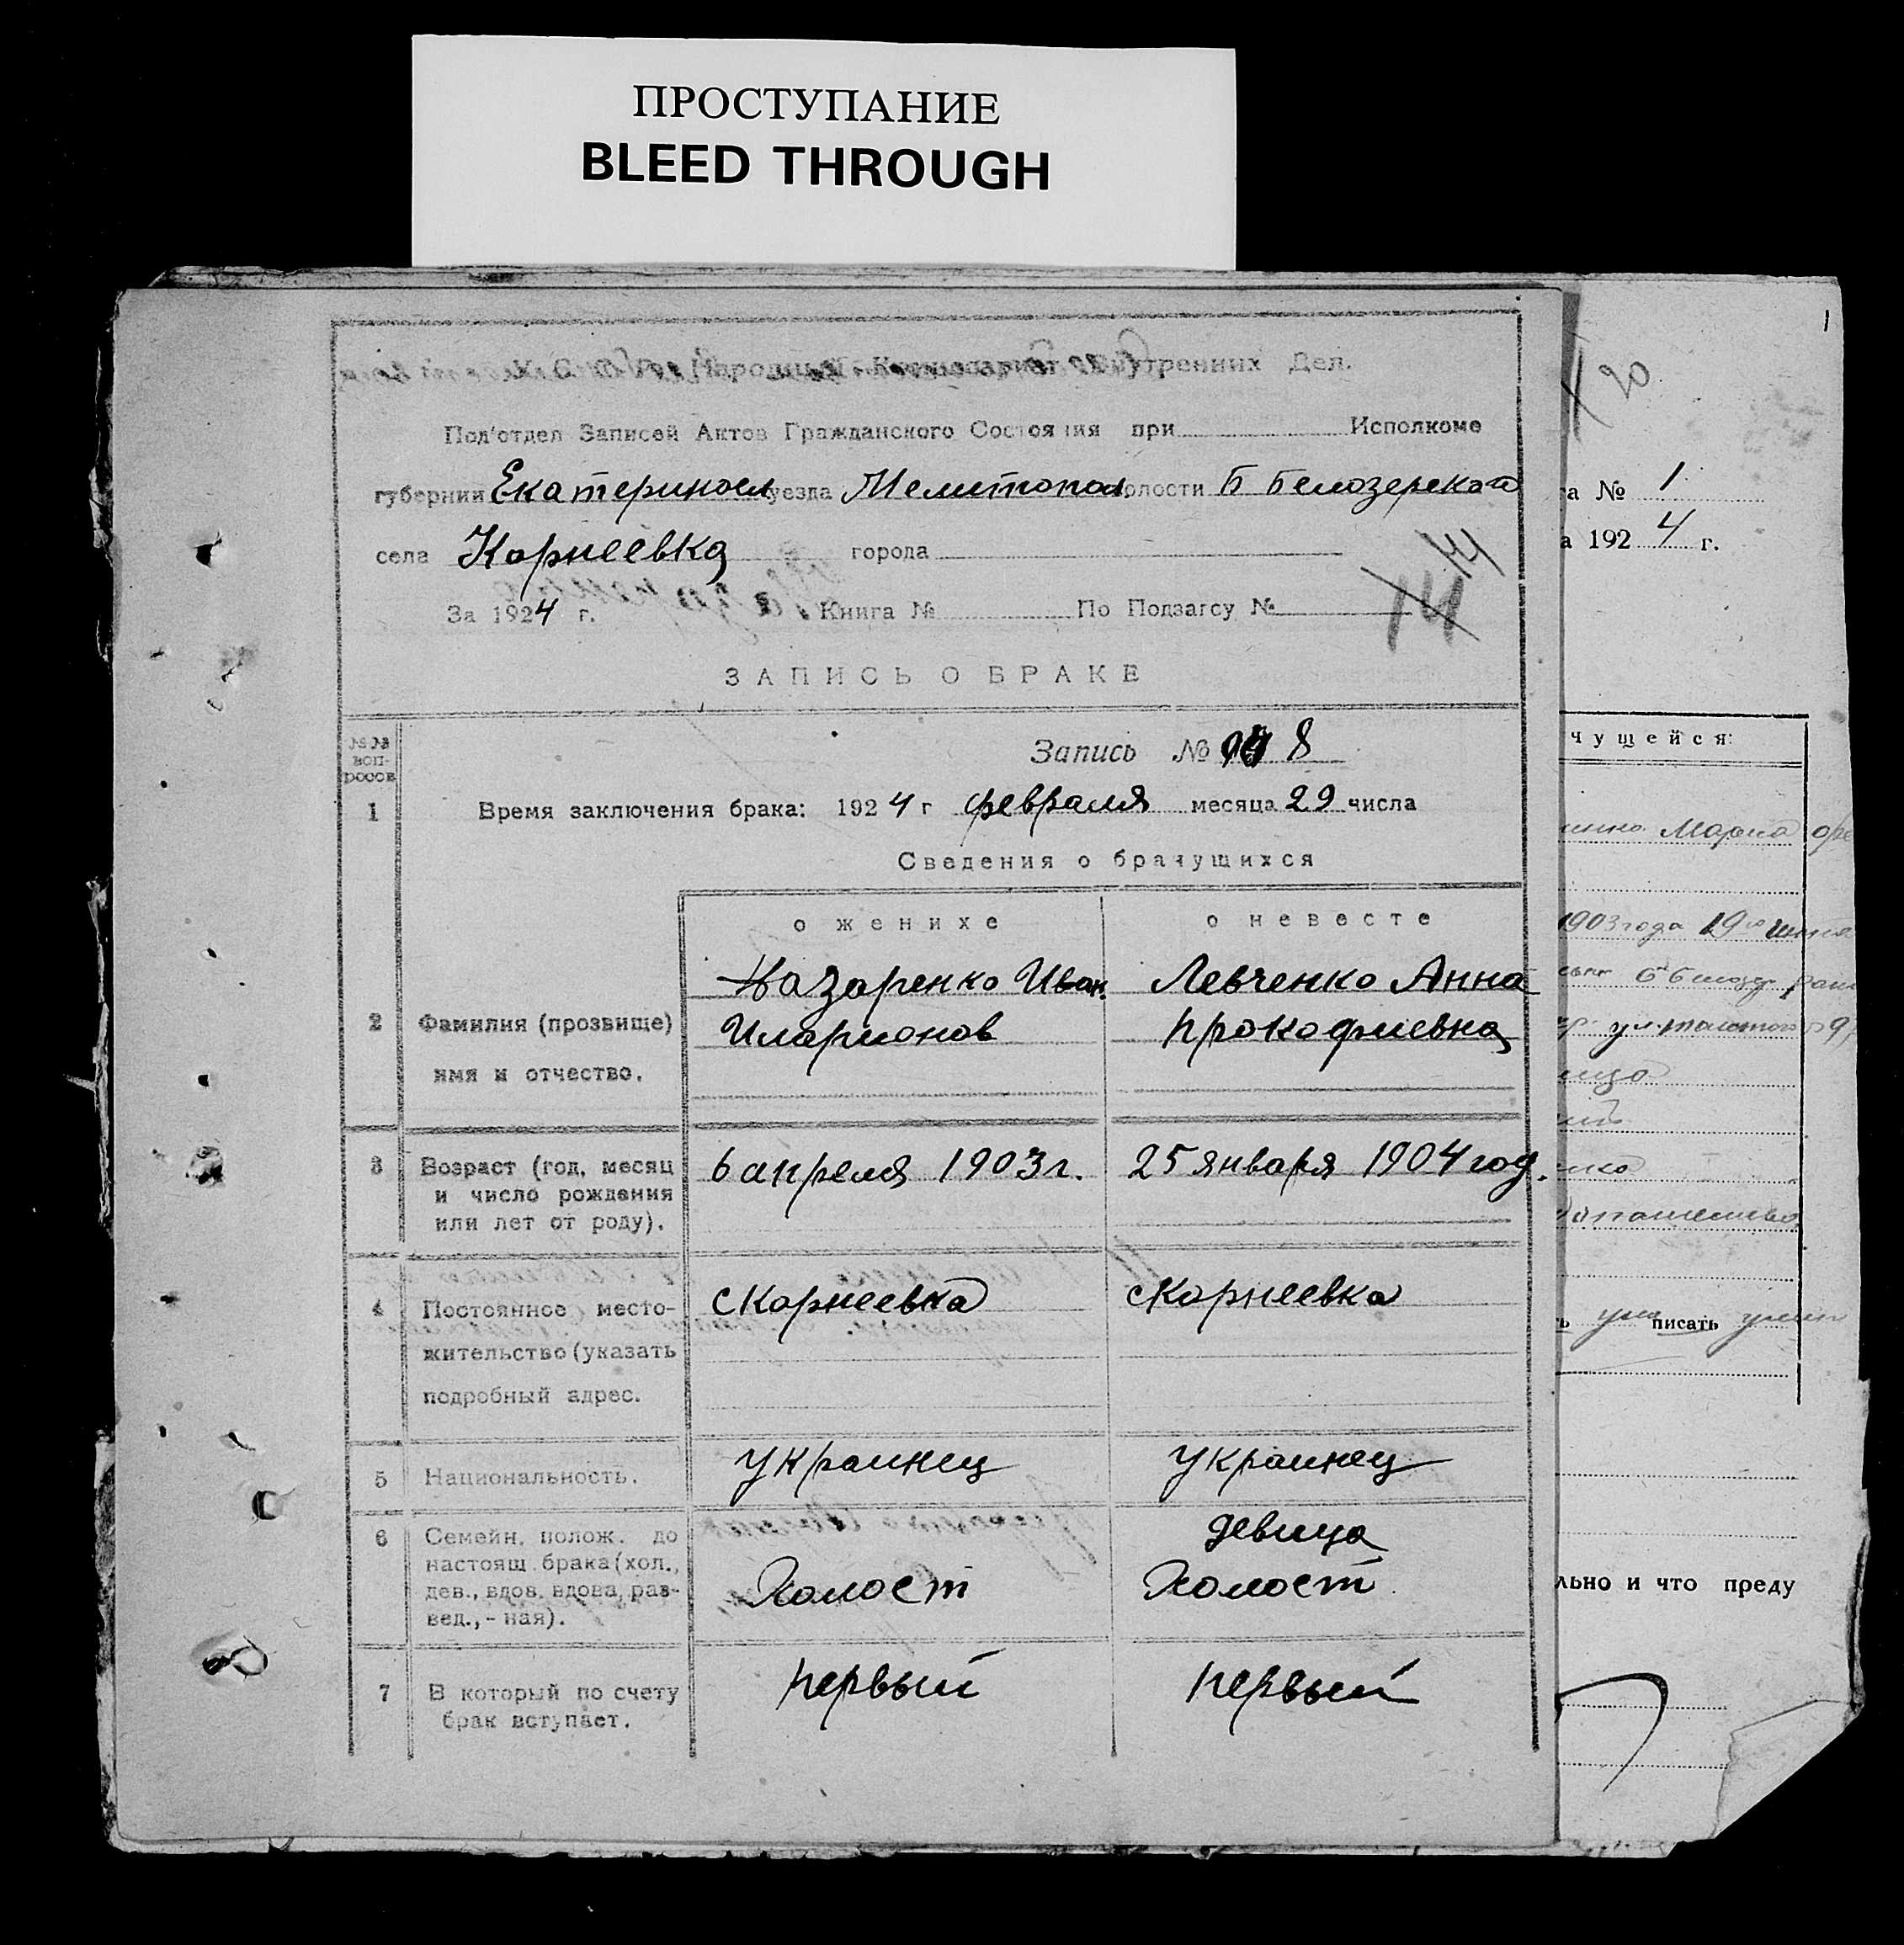 ПРОСТУПАНИЕ
BLEED THROUGH
Внутренних Дел.
Под'отдел Записей Актов Гражданского Состояния при Исполкоме
губернии Екатериносл уезда Мелитопол волости Б Белозерского
села Корнеевка города
За 1924 г. Книга № По Подзагсу № 14 14
ЗАПИСЬ О БРАКЕ
№№ воп-
росов
Запись № 8
1 Время заключения брака: 1924 г февраля месяца 29 числа
Сведения о брачущихся
о женихе о невесте
Назаренко Иван. Левченко Анна
2 Фамилия (прозвище) Иларионов Прокофиевна
имя и отчество.
3 Возраст (год, месяц 6 апреля 1903 г. 25 января 1904 год.
и число рождения
или лет от роду).
4 Постоянное место- с Корнеевка с Корнеевка
жительство (указать
подробный адрес.
5 Национальность. украинец украинец
6 Семейн. полож. до девица
настоящ. брака (хол., Холост Холост
дев., вдов, вдова, раз-
вед., - ная).
7 В который по счету первый первый
брак вступает.
1
20
№ 1
1924 г.
чущейся:
Мария
1903 года 19го
писать
льно и что преду